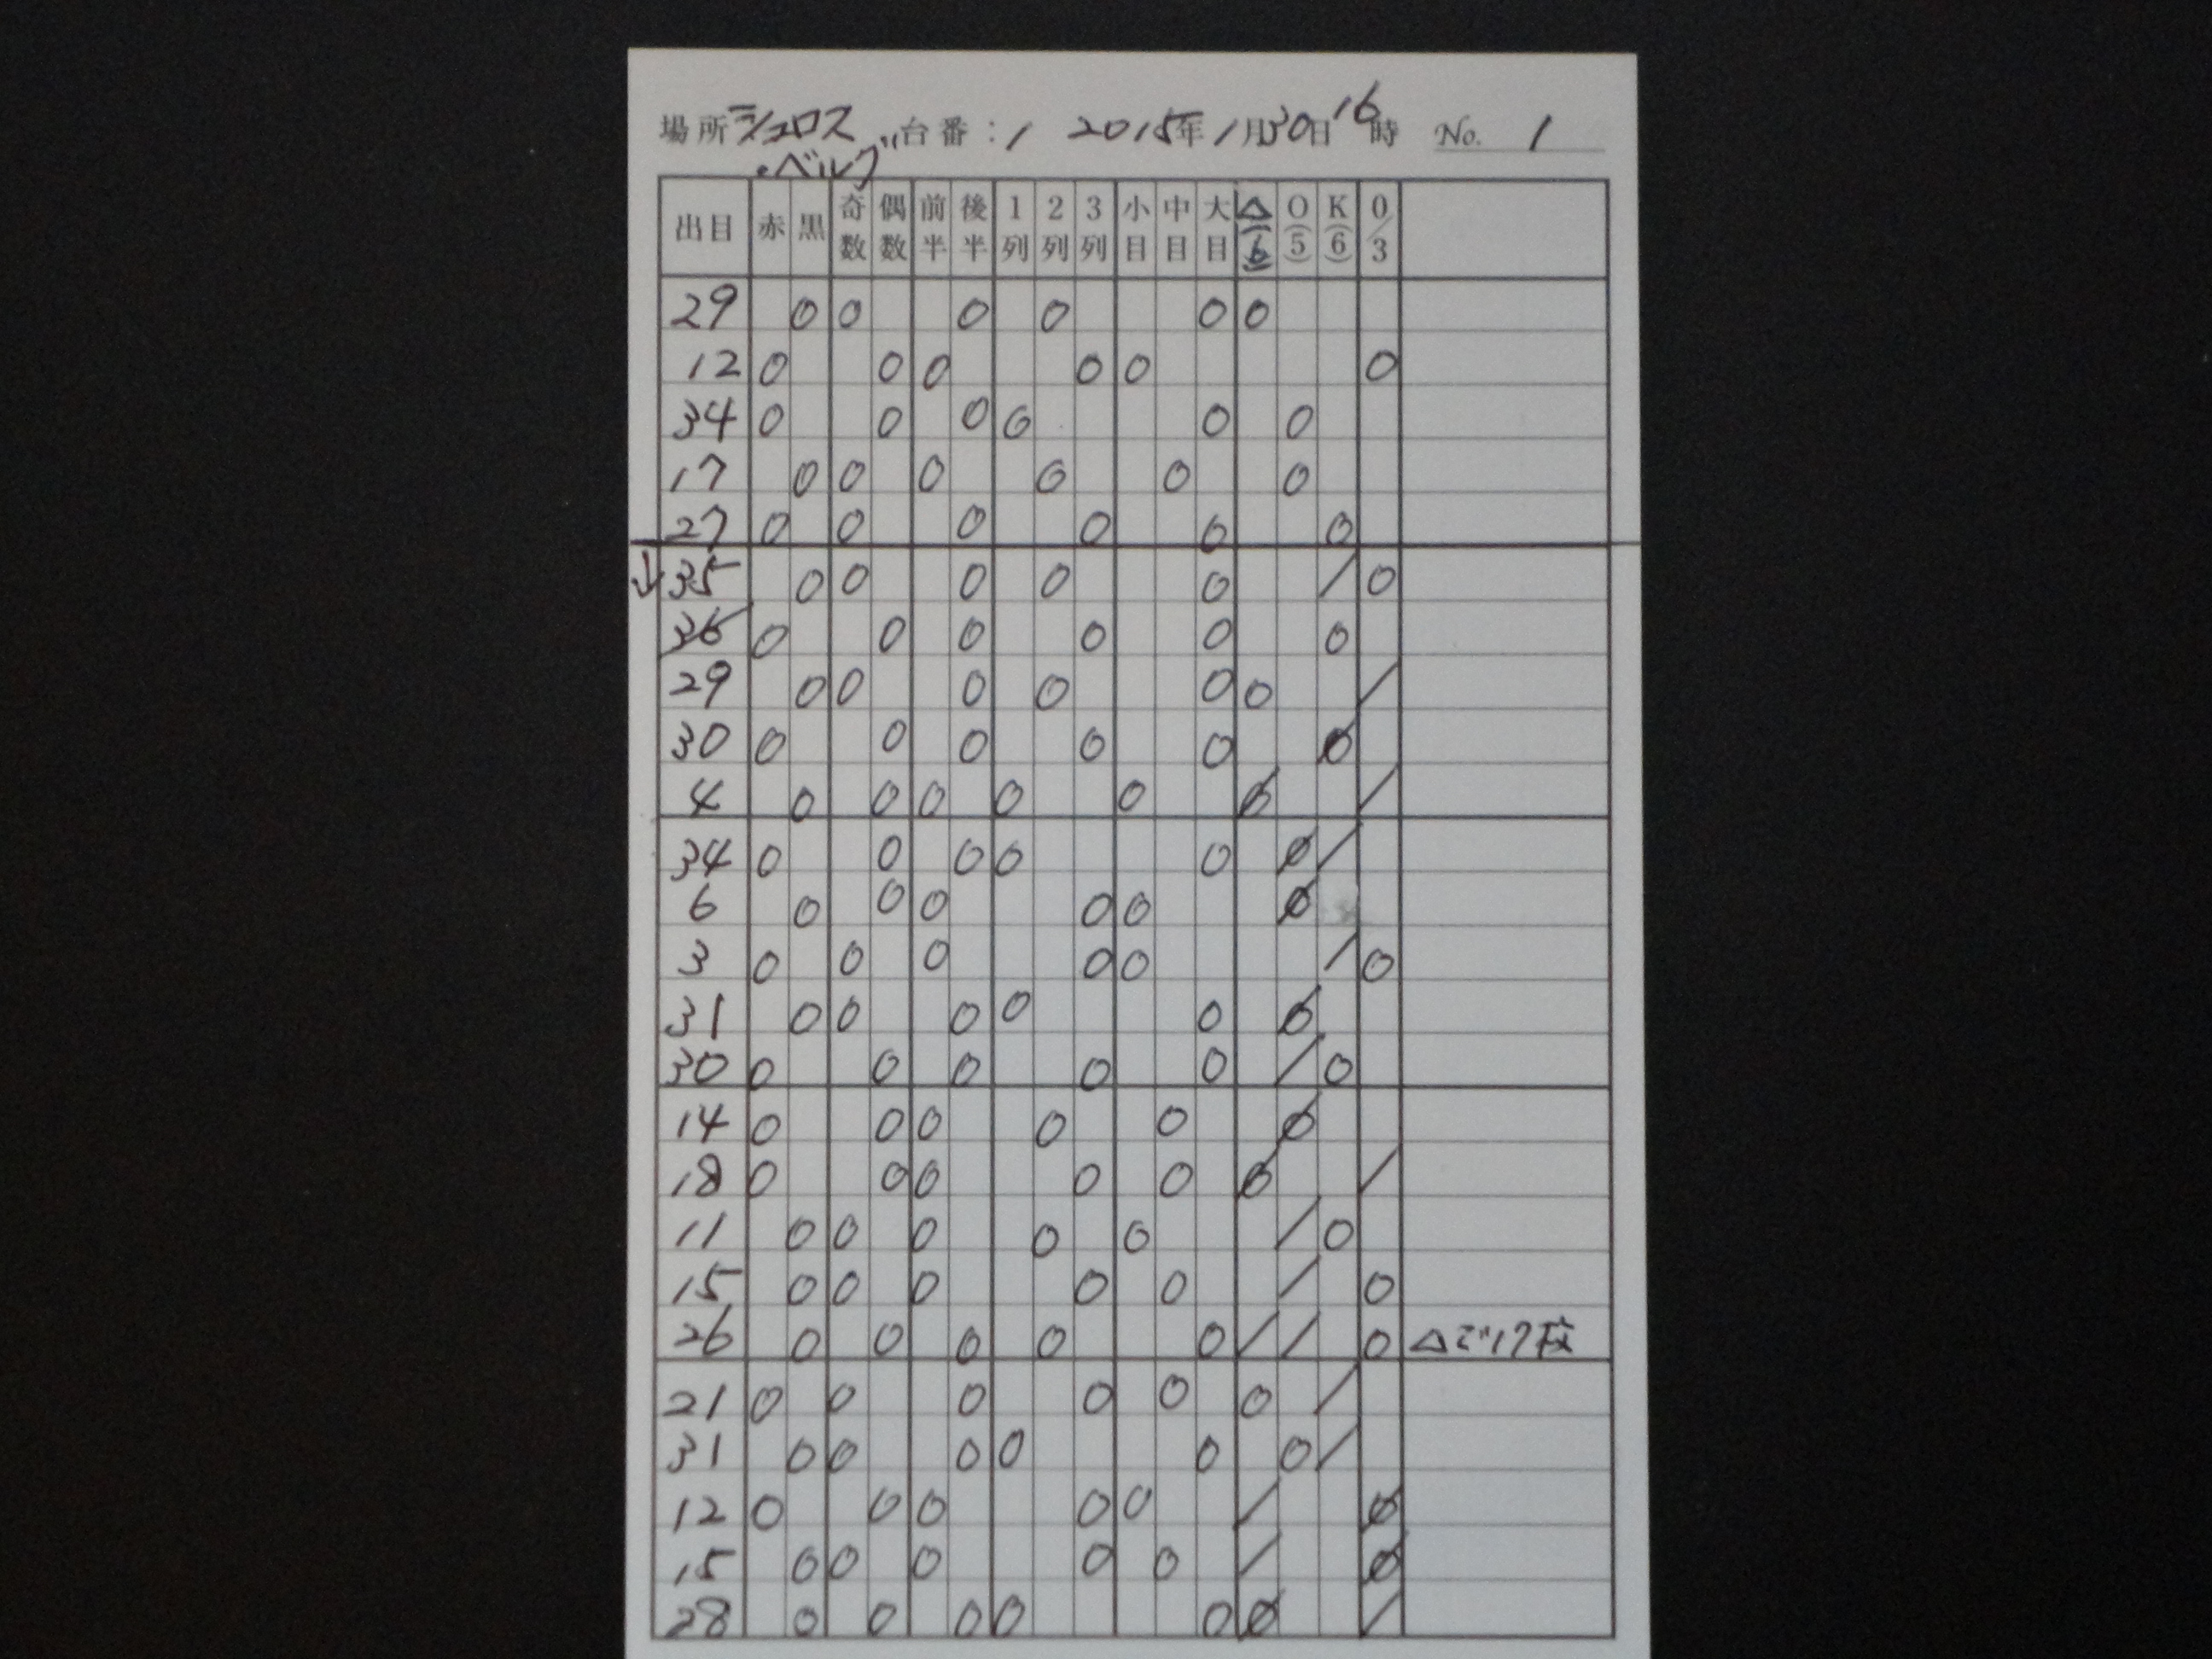 場所 シュロス 台番:1 2015年1月30日16時 No. 1
・ベルグ
出目 赤 黒 奇数 偶数 前半 後半 1列 2列 3列 小目 中目 大目 △(6) O(5) K(6) 0/3
29 0 0 0 0 0 0
12 0 0 0 0 0 0
34 0 0 0 0 0 0
17 0 0 0 0 0 0
27 0 0 0 0 0 0
↓ 35 0 0 0 0 0 / 0
36 0 0 0 0 0 0
29 0 0 0 0 0 0 /
30 0 0 0 0 0 0
4 0 0 0 0 0 0 /
34 0 0 0 0 0 0 /
6 0 0 0 0 0 0
3 0 0 0 0 0 / 0
31 0 0 0 0 0 0
30 0 0 0 0 0 / 0
14 0 0 0 0 0 0
18 0 0 0 0 0 0 /
11 0 0 0 0 0 / 0
15 0 0 0 0 0 / 0
26 0 0 0 0 0 / / 0
21 0 0 0 0 0 0 /
31 0 0 0 0 0 0 /
12 0 0 0 0 0 / 0
15 0 0 0 0 0 / 0
28 0 0 0 0 0 0 /